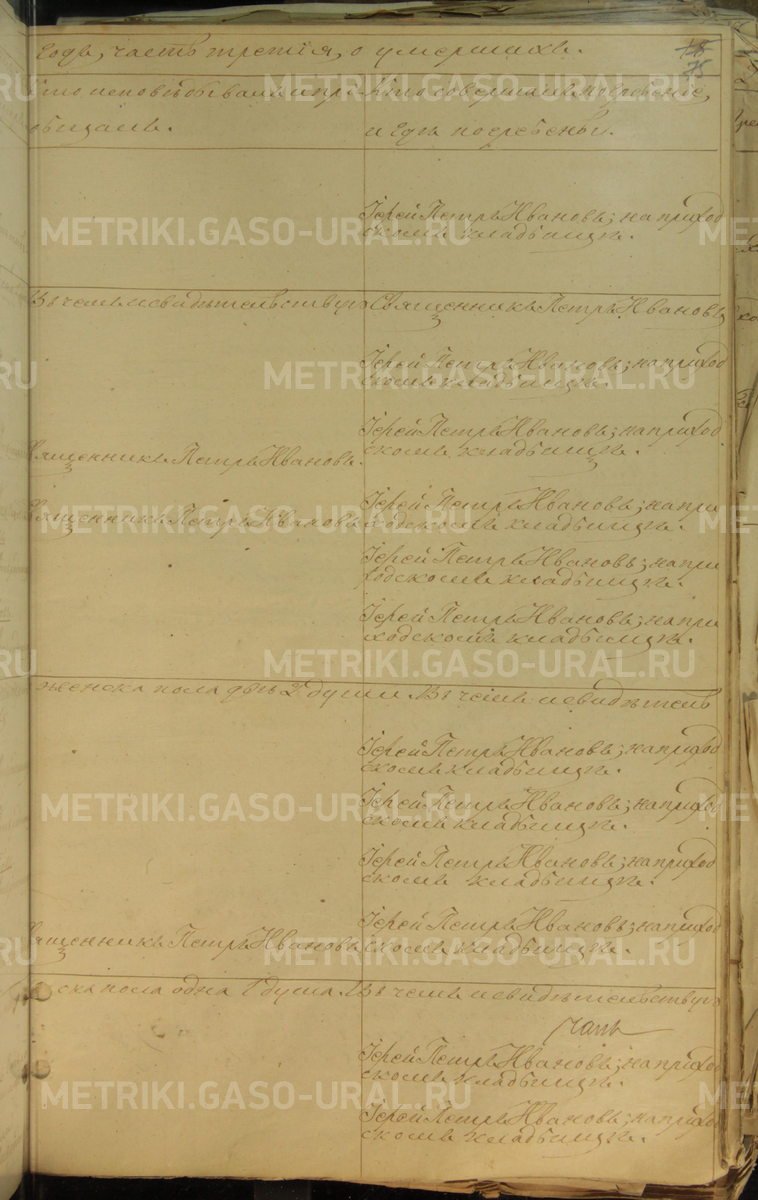 года, часть третія, о умершихъ.
75
Кто исповѣдывалъ и прі-
общалъ.
Кто совершалъ погребеніе,
и гдѣ погребены.
Іерей Петръ Ивановъ; на приход
скомъ кладбищѣ.
Въ чемъ и свидѣтельствую Священникъ Петръ Ивановъ
Іерей Петръ Ивановъ; на приход
скомъ кладбищѣ.
Священникъ Петръ Ивановъ.
Іерей Петръ Ивановъ; на приход
скомъ кладбищѣ.
Священникъ Петръ Ивановъ
Іерей Петръ Ивановъ; на при
ходскомъ кладбищѣ.
Іерей Петръ Ивановъ; на при
ходскомъ кладбищѣ.
Іерей Петръ Ивановъ; на при
ходскомъ кладбищѣ.
женска пола двѣ 2 души. Въ чемъ и свидѣтель
Іерей Петръ Ивановъ; на приход
скомъ кладбищѣ.
Іерей Петръ Ивановъ; на приход
скомъ кладбищѣ.
Іерей Петръ Ивановъ; на приход
скомъ кладбищѣ.
Священникъ Петръ Ивановъ
Іерей Петръ Ивановъ; на приход
скомъ кладбищѣ.
ска пола одна 1 душа. Въ чемъ и свидѣтельствую
Іерей Петръ Ивановъ; на приход
скомъ кладбищѣ.
Іерей Петръ Ивановъ; на приход
скомъ кладбищѣ.
METRIKI.GASO-URAL.RU